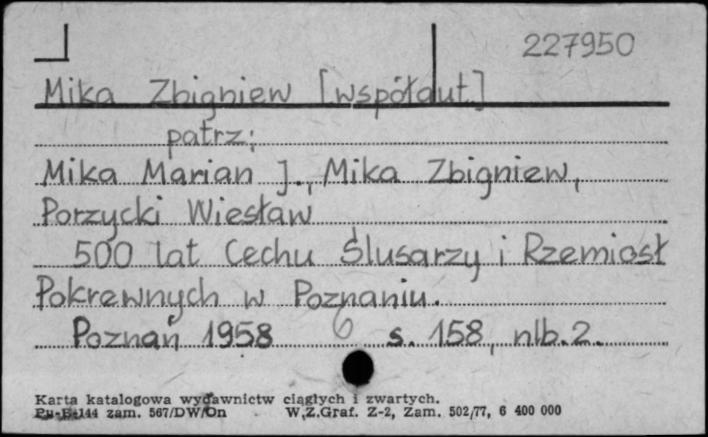 227950
Mika Zbigniew [współaut.]
patrz:
Mika Marian J., Mika Zbigniew,
Porzycki Wiesław
500 lat Cechu Ślusarzy i Rzemiosł
Pokrewnych w Poznaniu.
Poznań 1958 6 s. 158, nlb. 2.
Karta katalogowa wydawnictw ciągłych i zwartych.
Pu-B-144 zam. 567/DW/On W.Z.Graf. Z-2, Zam. 502/77, 6 400 000